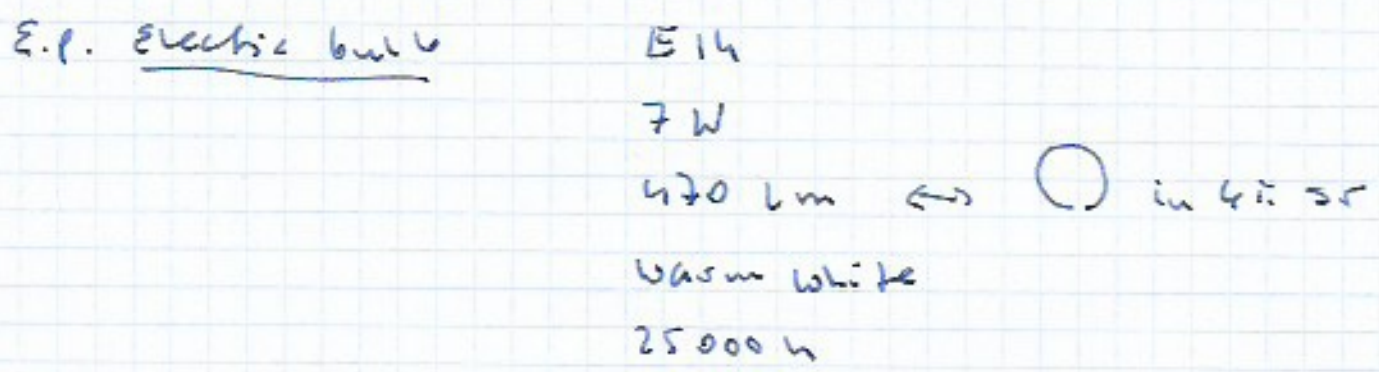 E.g. Electric bulb E14
7 W
470 lm ⟷ ◯ in 4π sr
warm white
25 000 h